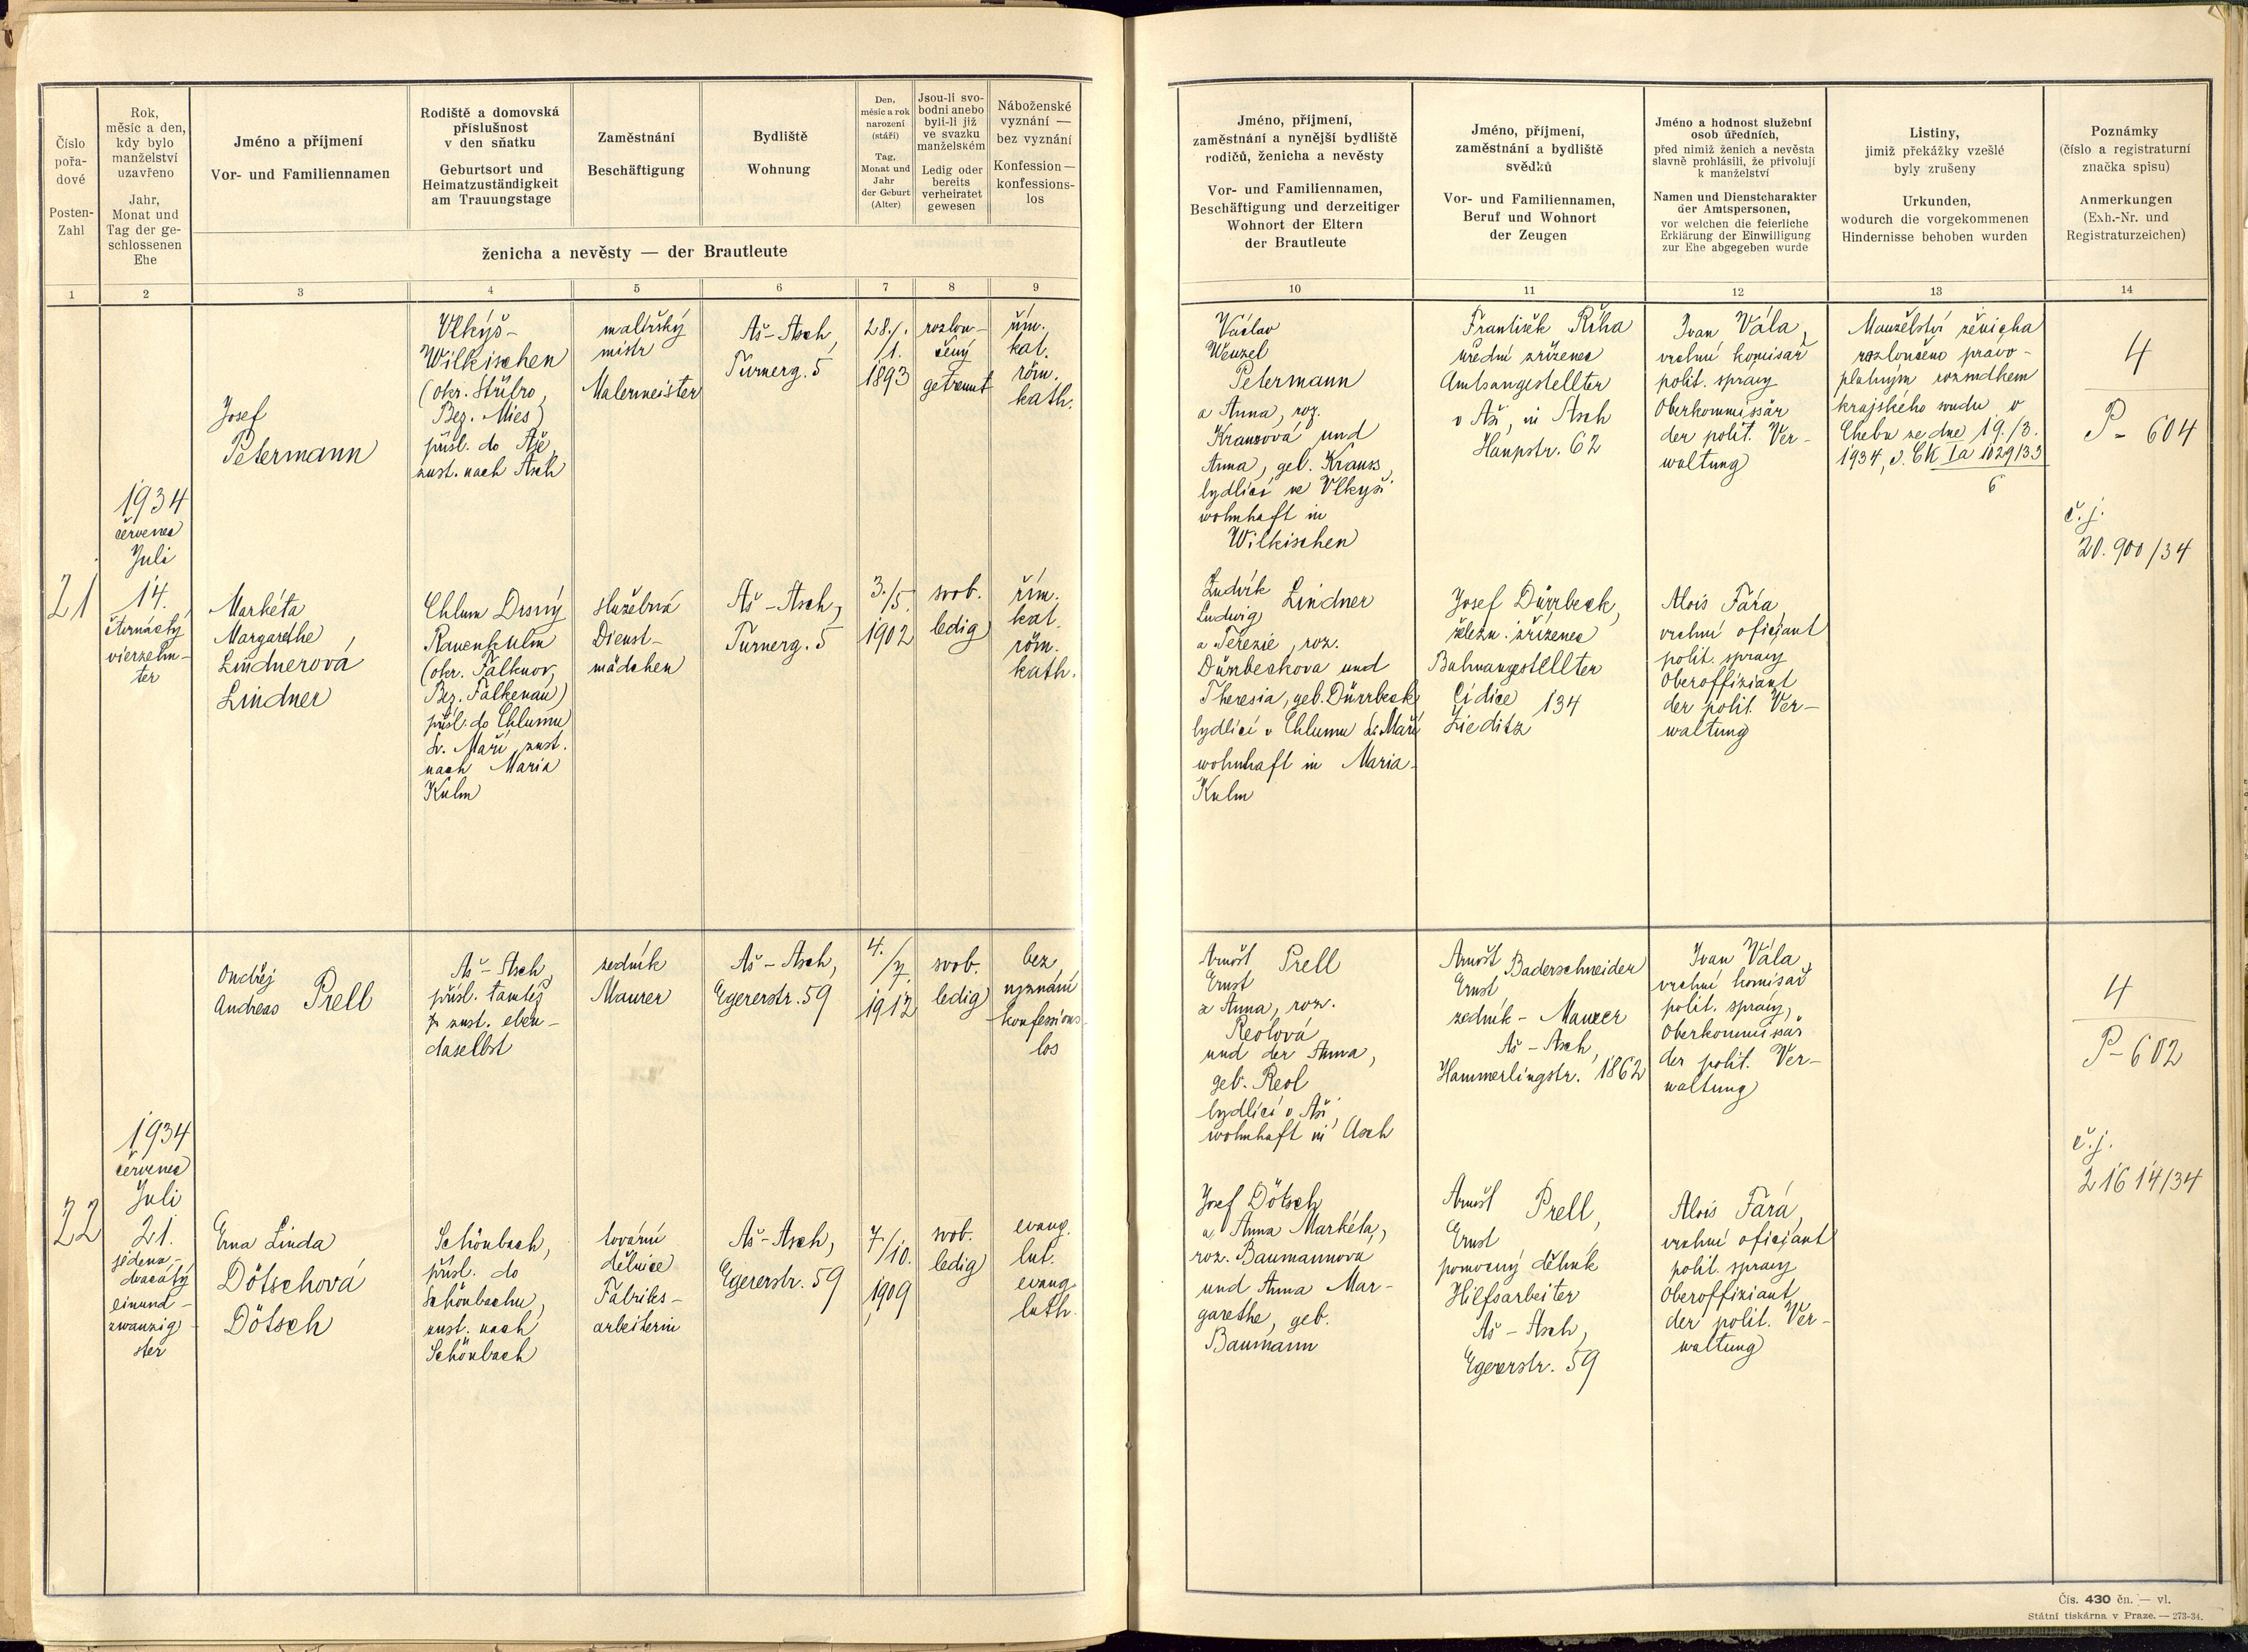 Číslo
pořa-
dové
Posten-
Zahl
Rok,
měsíc a den,
kdy bylo
manželství
uzavřeno
Jahr,
Monat und
Tag der ge-
schlossenen
Ehe
Jméno a příjmení
Vor- und Familiennamen
Rodiště a domovská
příslušnost
v den sňatku
Geburtsort und
Heimatzuständigkeit
am Trauungstage
Zaměstnání
Beschäftigung
Bydliště
Wohnung
Den,
měsíc a rok
narození
(stáří)
Tag,
Monat und
Jahr
der Geburt
(Alter)
Jsou-li svo-
bodni anebo
byli-li již
ve svazku
manželském
Ledig oder
bereits
verheiratet
gewesen
Náboženské
vyznání —
bez vyznání
Konfession —
konfessions-
los
ženicha a nevěsty — der Brautleute
1
2
3
4
5
6
7
8
9
21
1934
červenec
Juli
14.
čtrnáctý
vierzehn-
ter
Josef
Petermann
Vlkýš-
Wilkischen
(okr. Stříbro,
Bez. Mies)
přísl. do Aše,
zust. nach Asch
malířský
mistr
Malermeister
Aš-Asch,
Turnerg. 5
28./.
/1.
1893
rozlou-
čený
getrennt
řím.
kat.
röm.
kath.
Markéta
Margarethe,
Lindnerová
Lindner
Chlum Drsný
Rauenkulm
(okr. Falknov,
Bez. Falkenau)
přísl. do Chlumu
Sv. Maří, zust.
nach Maria
Kulm
služebná
Dienst-
mädchen
Aš-Asch,
Turnerg. 5
3./5.
1902
svob.
ledig
řím.
kat.
röm.
kath.
22
1934
červenec
Juli
21.
jeden a-
dvacátý
einund-
zwanzig-
ster
Ondřej
Andreas Prell
Aš-Asch,
přísl. tamtéž
zust. eben-
daselbst
zedník
Maurer
Aš-Asch,
Egererstr. 59
4./7.
1912
svob.
ledig
bez
vyznání
konfessions-
los
Erna Linda
Dötschová
Dötsch
Schönbach,
přísl. do
Schönbachu,
zust. nach
Schönbach
tovární
dělnice
Fabriks-
arbeiterin
Aš-Asch,
Egererstr. 59
7./10.
1909
svob.
ledig
evang.
lut.
evang.
luth.
Jméno, příjmení,
zaměstnání a nynější bydliště
rodičů, ženicha a nevěsty
Vor- und Familiennamen,
Beschäftigung und derzeitiger
Wohnort der Eltern
der Brautleute
Jméno, příjmení,
zaměstnání a bydliště
svědků
Vor- und Familiennamen,
Beruf und Wohnort
der Zeugen
Jméno a hodnost služební
osob úředních,
před nimiž ženich a nevěsta
slavně prohlásili, že přivolují
k manželství
Namen und Dienstcharakter
der Amtspersonen,
vor welchen die feierliche
Erklärung der Einwilligung
zur Ehe abgegeben wurde
Listiny,
jimiž překážky vzešlé
byly zrušeny
Urkunden,
wodurch die vorgekommenen
Hindernisse behoben wurden
Poznámky
(číslo a registraturní
značka spisu)
Anmerkungen
(Exh.-Nr. und
Registraturzeichen)
10
11
12
13
14
Václav
Wenzel
Petermann
a Anna, roz.
Krauzová und
Anna, geb. Krauss,
bydlící ve Vlkýši
wohnhaft in
Wilkischen
František Říha
úřední zřízenec
Amtsangestellter
v Aši, in Asch
Haupstr. 62
Ivan Vála,
vrchní komisař
polit. správy
Oberkommissär
der polit. Ver-
waltung
Manželství ženicha
rozloučeno právo-
platným rozsudkem
krajského soudu v
Chebu ze dne 19./3.
1934, č. Ck Ia 1029/33
6
4
P-604
č.j.
20.900/34
Ludvík
Ludwig Lindner
a Terezie, roz.
Dürrbeckova und
Theresia, geb. Dürrbeck
bydlící v Chlumu Sv. Maří
wohnhaft in Maria-
Kulm
Josef Dürrbeck,
železn. zřízenec
Bahnangestellter
Citice 134
Zieditz
Alois Fára,
vrchní oficiant
polit. správy
Oberoffiziant
der polit. Ver-
waltung
Arnošt
Ernst Prell
a Anna, roz.
Reolová
und der Anna,
geb. Reol
bydlící v Aši,
wohnhaft in Asch
Arnošt
Ernst Baderschneider
zedník - Maurer
Aš-Asch,
Hammerlingstr. 1862
Ivan Vála,
vrchní komisař
polit. správy,
Oberkommissär
der polit. Ver-
waltung
4
P-602
č.j.
21614/34
Josef Dötsch
a Anna Markéta,
roz. Baumannova
und Anna Mar-
garethe, geb.
Baumann
Arnošt
Ernst Prell,
pomocný dělník
Hilfsarbeiter
Aš-Asch,
Egererstr. 59
Alois Fára,
vrchní oficiant
polit. správy
Oberoffiziant
der polit. Ver-
waltung
Čís. 430 čn. — vl.
Státní tiskárna v Praze. — 273-34.